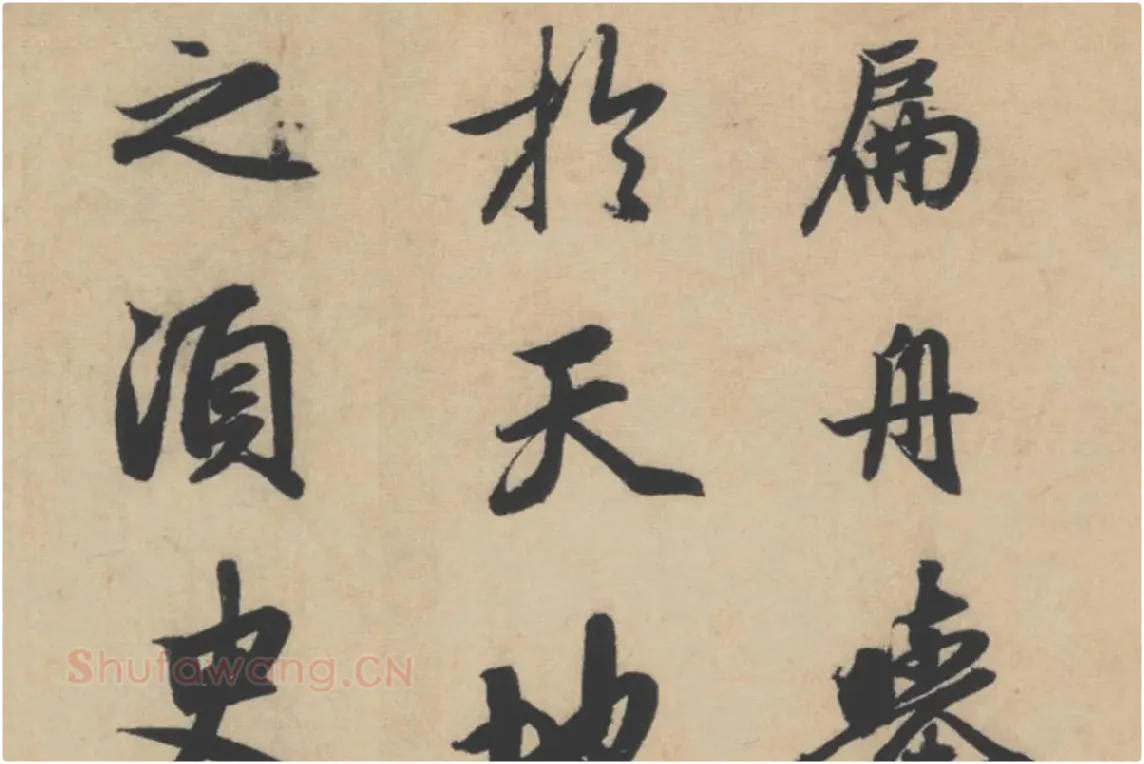 扁舟舉
於天地
之須臾
Shufawang.CN